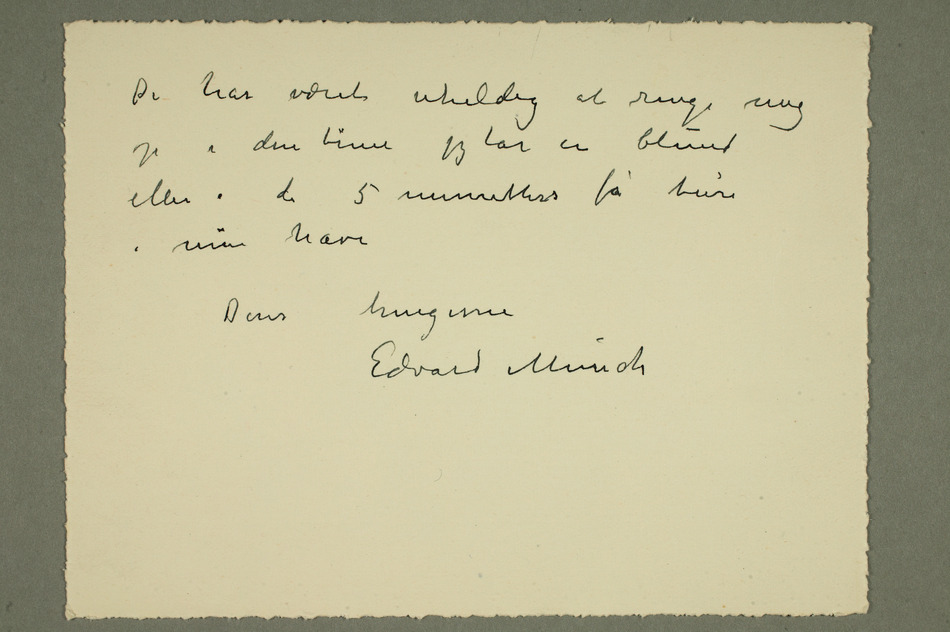 De har været uheldig at ringe mig
i den time jeg tar en blund
eller i de 5 minutters få ture
i min have
Deres hengivne
Edvard Munch